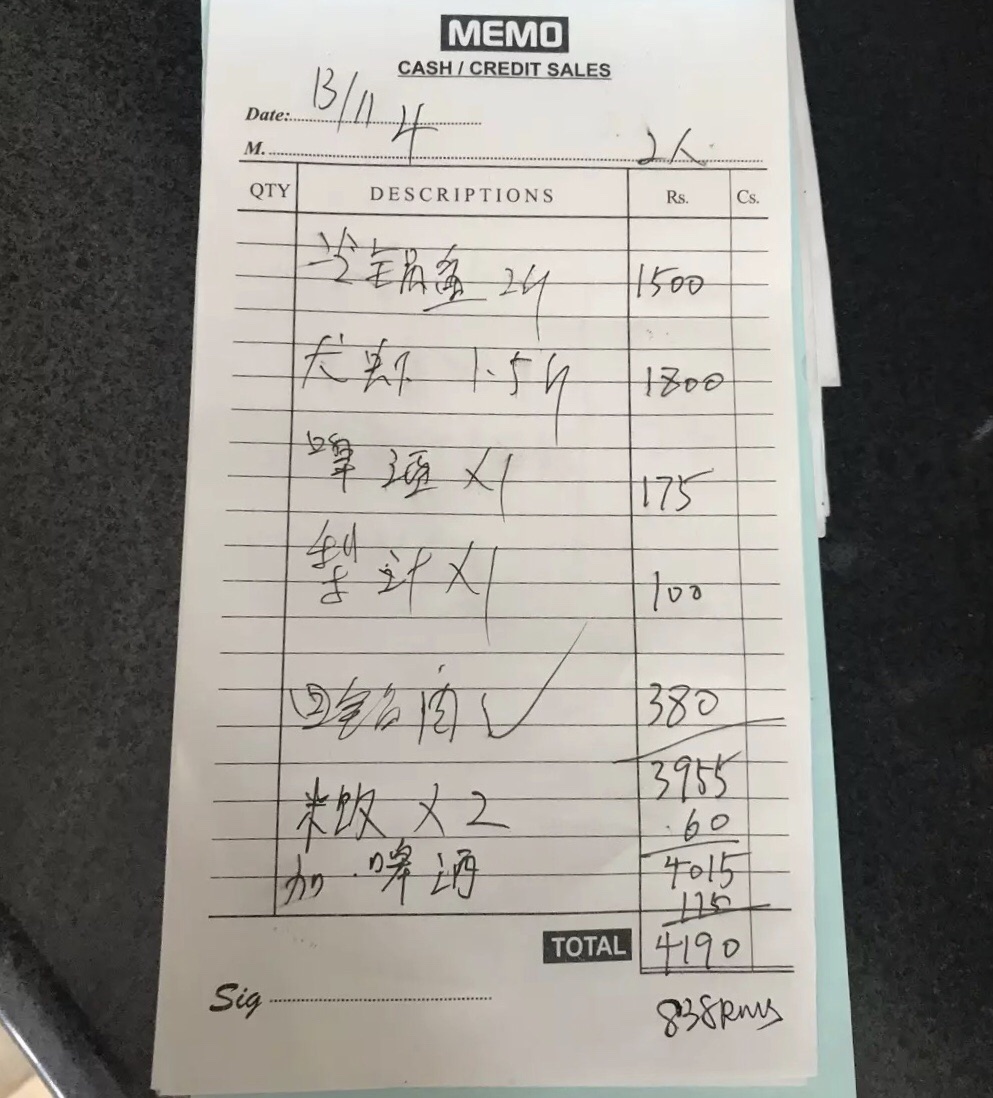 MEMO
CASH / CREDIT SALES
Date: 13/11
M. 4 2人
QTY DESCRIPTIONS Rs. Cs.
鱼 2斤 1500
大虾 1.5斤 1800
啤酒 X1 175
X1 100
肉 380
3955
米饭 X 2 60
4015
加 啤酒 175
TOTAL 4190
Sig
838RMB